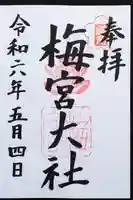 奉拝
梅宮大社
令和六年五月四日